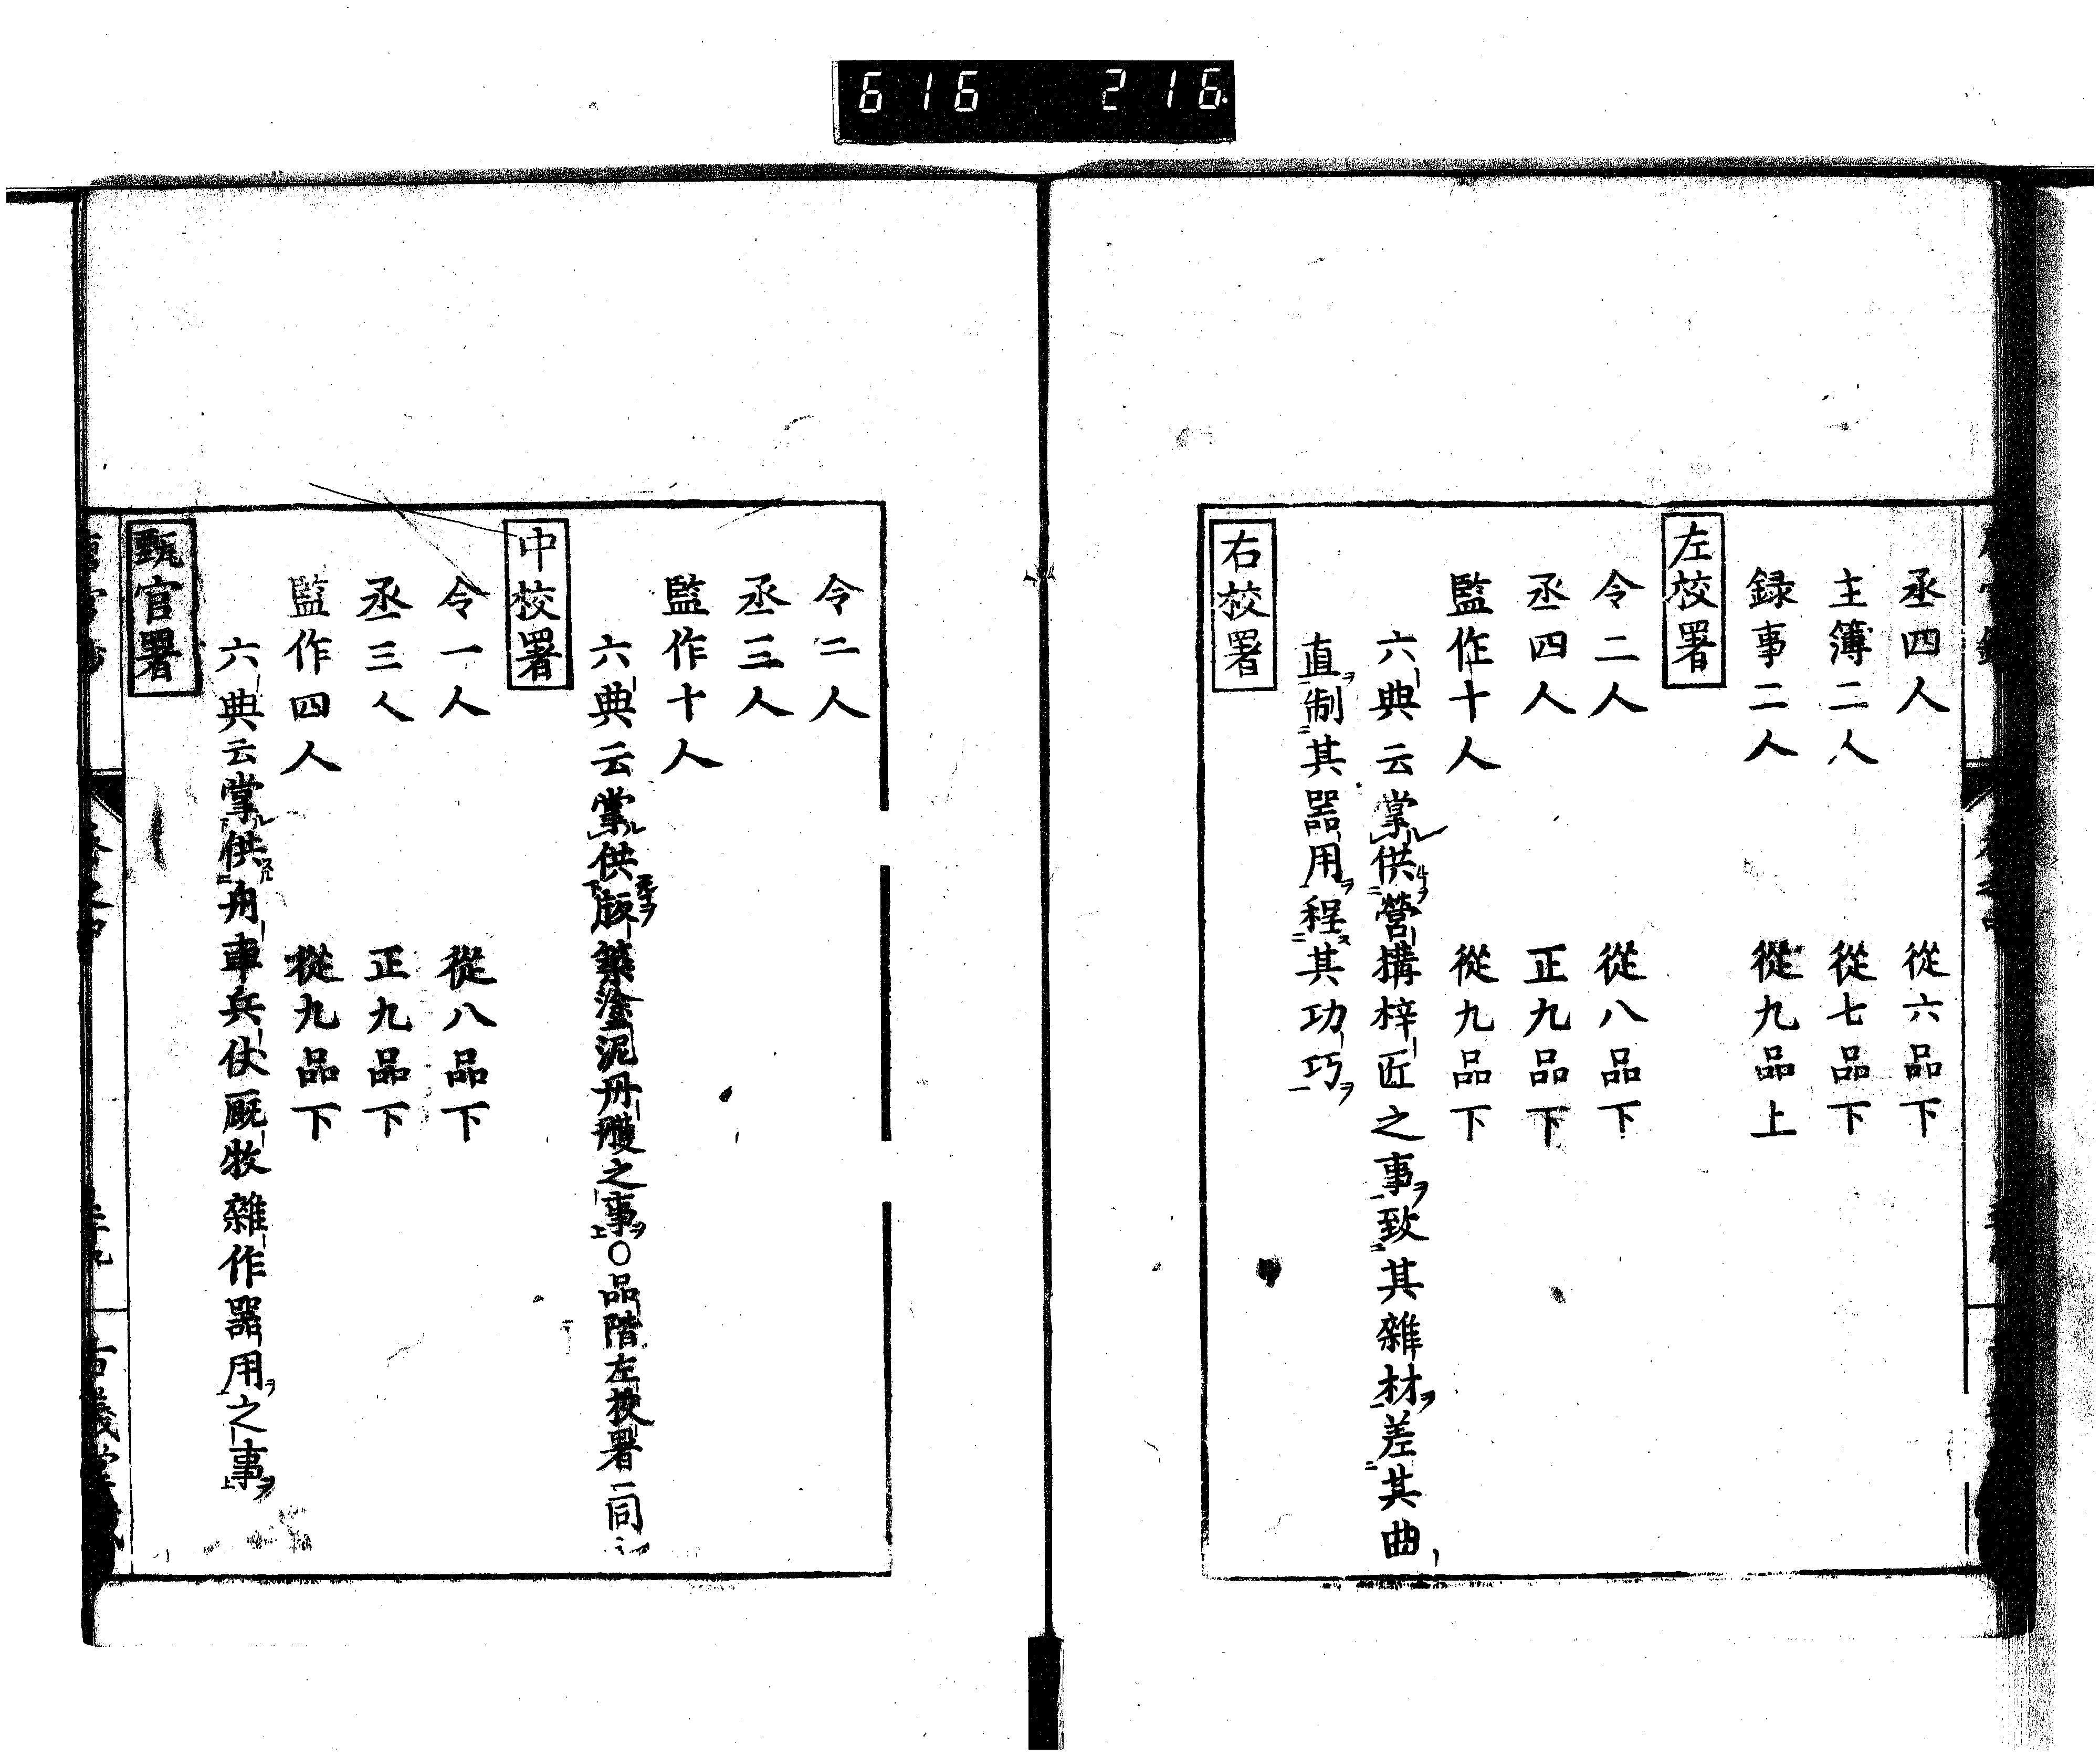 616 216
丞四人 從六品下
主簿二人 從七品下
録事二人 從九品上
左校署
令二人 從八品下
丞四人 正九品下
監作十人 從九品下
六典云掌供營搆梓匠之事ヲ致其雜材ヲ差其曲
直ヲ制其器用ヲ程其功巧ヲ
右校署
令二人
丞三人
監作十人
六典云掌供版築塗泥丹雘之事ヲ○品階左校署ニ同シ
中校署
令一人 從八品下
丞三人 正九品下
監作四人 從九品下
六典云掌供舟車兵仗厩牧雜作器用ヲ之事ヲ
甄官署